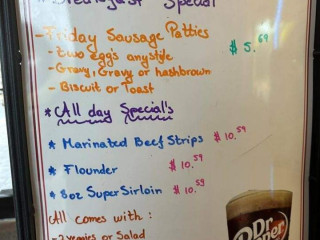 * Breakfast Special
- Friday Sausage Patties
- two egg's anystyle
$ 5.69
- Gravy, Gravy or hashbrown
- Biscuit or Toast
* All day Special's
* Marinated Beef Strips $ 10.59
* Flounder $ 10.59
* 8oz Super Sirloin $ 10.59
All comes with :
- 2 veggies or Salad
Dr Pepper